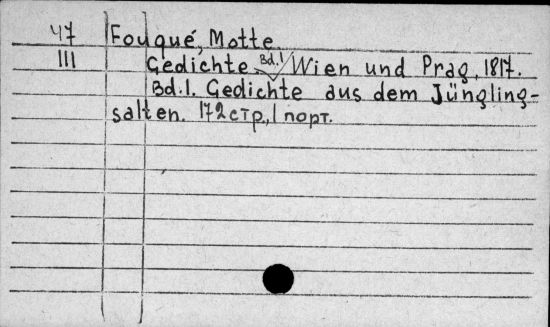 47 Fouqué, Motte.
III Gedichte Bd.1 Wien und Prag, 1817.
Bd.1. Gedichte aus dem Jüngling-
salten. 172 стр., 1 порт.